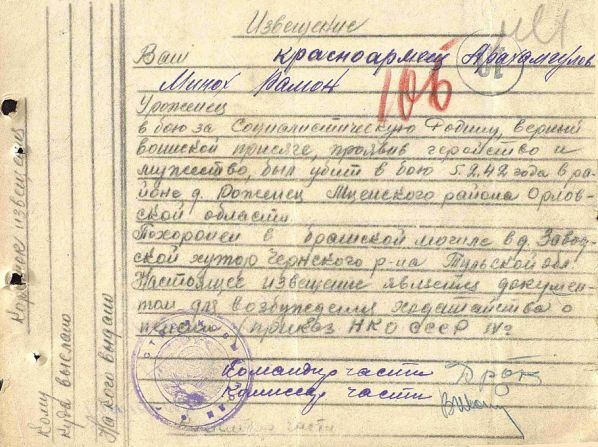 Извещение
Ваш красноармеец
106
Минох Рамон
Уроженец
в бою за Социалистическую Родину, верный
воинской присяге, проявив геройство и
мужество, был убит в бою 5.2.42 года в ра-
йоне д. Роженец Мценского района Орлов-
ской области
Похоронен в братской могиле в д. Завод-
ской хутор Чернского р-на Тульской обл.
Настоящее извещение является докумен-
том для возбуждения ходатайства о
пенсии (приказ НКО СССР
Командир части
Комиссар части
части
Корешок извещения
Кому
Куда выслано
На кого выдано